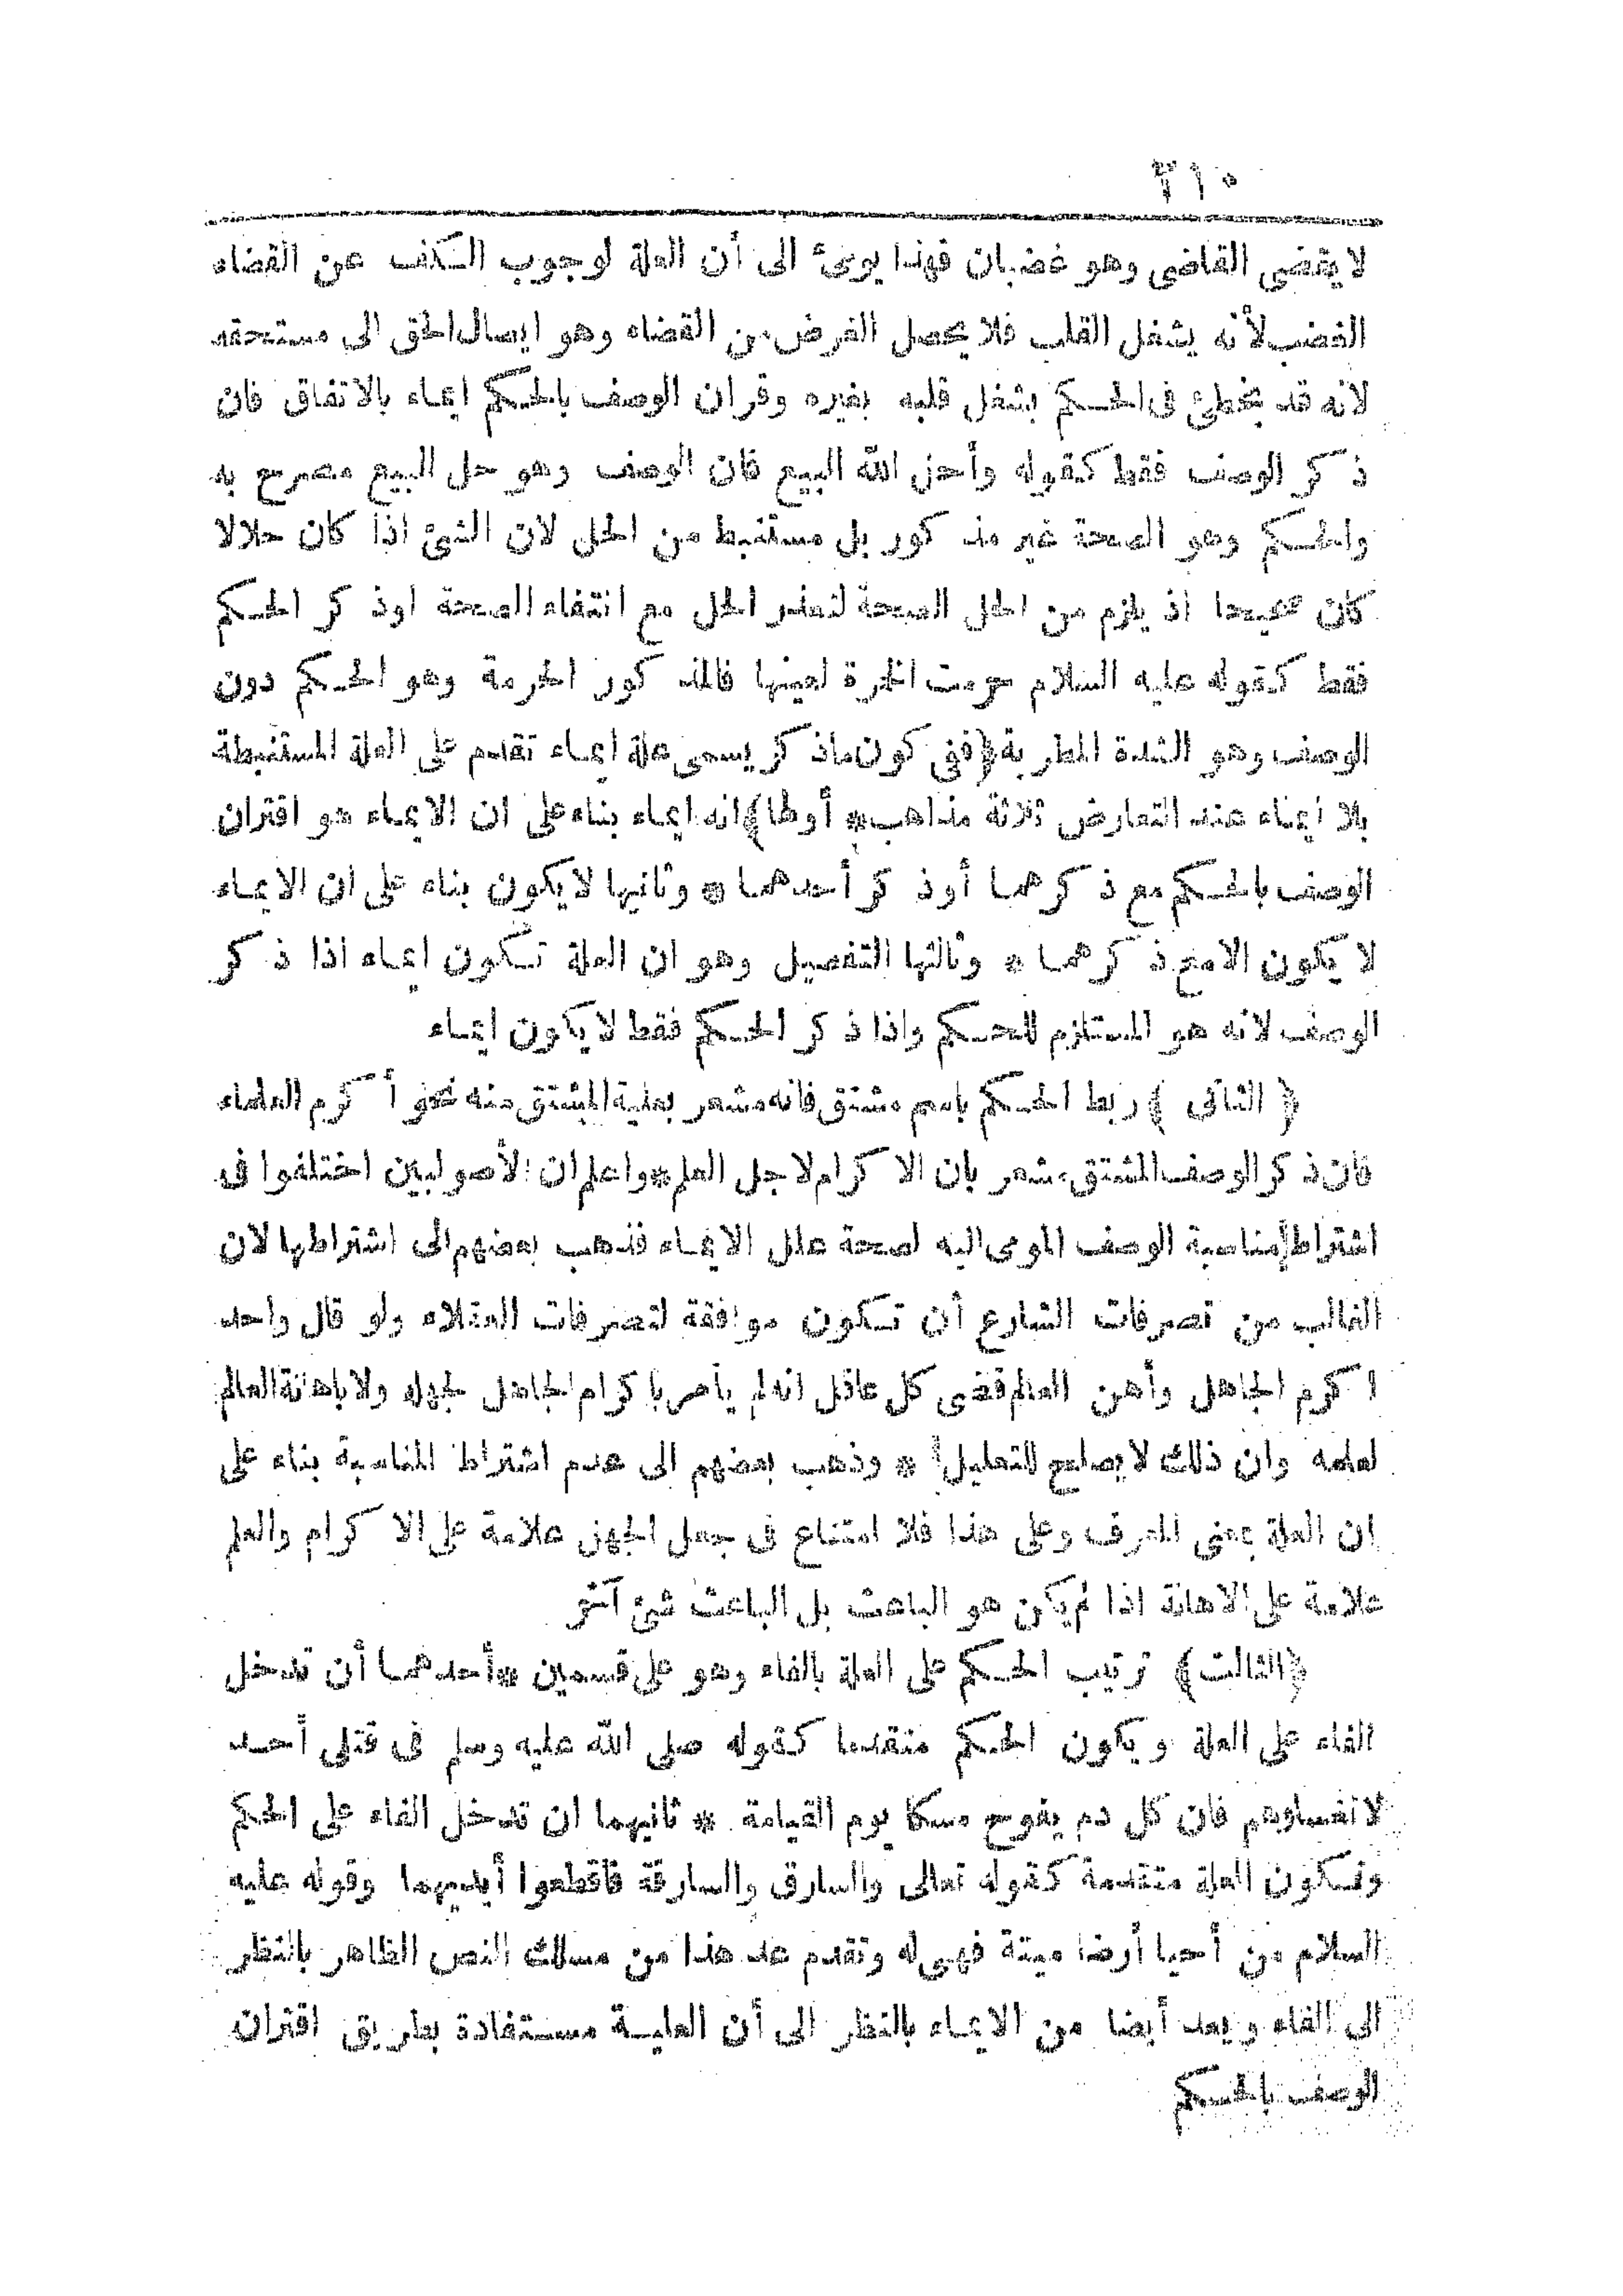 ٢١٠
لا يقضى القاضى وهو غضبان فهذا يومئ الى أن العلة لوجوب الكف عن القضاء
الغضب لأنه يشغل القلب فلا يحصل الغرض من القضاء وهو ايصال الحق الى مستحقه
لانه قد يخطئ فى الحكم بشغل قلبه بغيره وقران الوصف بالحكم ايماء بالاتفاق فان
ذكر الوصف فقط كقوله وأحل الله البيع فان الوصف وهو حل البيع مصرح به
والحكم وهو الصحة غير مذكور بل مستنبط من الحل لان الشئ اذا كان حلالا
كان صحيحا اذ يلزم من الحل الصحة لتعذر الحل مع انتفاء الصحة اوذكر الحكم
فقط كقوله عليه السلام حرمت الخمرة لعينها فالمذكور الحرمة وهو الحكم دون
الوصف وهو الشدة المطربة (ففى كون ماذكر يسمى علة ايماء تقدم على العلة المستنبطة
بلا ايماء عند التعارض ثلاثة مذاهب * أولها) انه ايماء بناء على ان الايماء هو اقتران
الوصف بالحكم مع ذكرهما أوذكر أحدهما * وثانيها لا يكون بناء على ان الايماء
لا يكون الا مع ذكرهما * وثالثها التفصيل وهو ان العلة تكون ايماء اذا ذكر
الوصف لانه هو المستلزم للحكم واذا ذكر الحكم فقط لا يكون ايماء
﴿ الثانى ﴾ ربط الحكم باسم مشتق فانه مشعر بعلية المشتق منه نحو أكرم العلماء
فان ذكر الوصف المشتق مشعر بان الاكرام لاجل العلم * واعلم ان الأصوليين اختلفوا فى
اشتراط مناسبة الوصف المومى اليه لصحة علل الايماء فذهب بعضهم الى اشتراطها لان
الغالب من تصرفات الشارع أن تكون موافقة لتصرفات العقلاء ولو قال واحد
اكرم الجاهل وأهن العالم قضى كل عاقل انه لم يأمر باكرام الجاهل لجهله ولا باهانة العالم
لعلمه وان ذلك لا يصلح للتعليل * وذهب بعضهم الى عدم اشتراط المناسبة بناء على
ان العلة بمعنى المعرف وعلى هذا فلا امتناع فى جعل الجهل علامة على الاكرام والعلم
علامة على الاهانة اذا لم يكن هو الباعث بل الباعث شئ آخر
﴿الثالث﴾ ترتيب الحكم على العلة بالفاء وهو على قسمين * أحدهما أن تدخل
الفاء على العلة ويكون الحكم متقدما كقوله صلى الله عليه وسلم فى قتلى أحد
لا تغسلوهم فان كل دم يفوح مسكا يوم القيامة * ثانيهما ان تدخل الفاء على الحكم
وتكون العلة متقدمة كقوله تعالى والسارق والسارقة فاقطعوا أيديهما وقوله عليه
السلام من أحيا أرضا ميتة فهى له وتقدم عد هذا من مسلك النص الظاهر بالنظر
الى الفاء ويعد أيضا من الايماء بالنظر الى أن العلية مستفادة بطريق اقتران
الوصف بالحكم